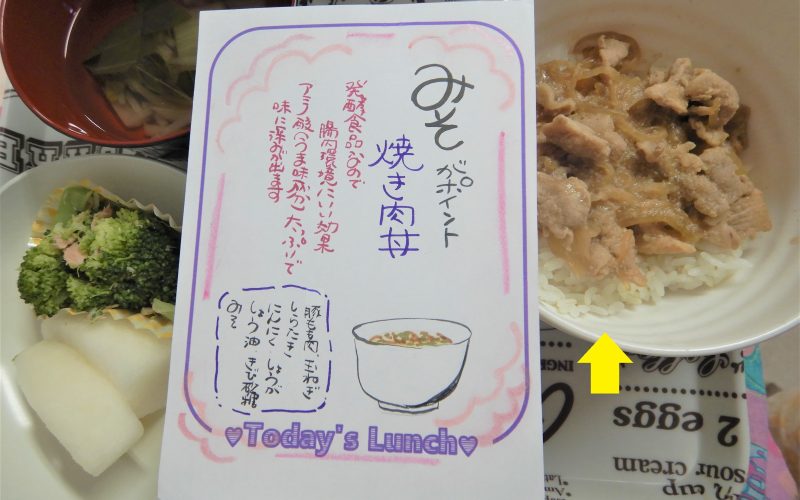 みそがポイント
焼き肉丼
発酵食品なので
腸内環境にいい効果
アミノ酸(うま味成分)たっぷりで
味に深みが出ます
豚もも肉、玉ねぎ
しらたき
にんにく しょうが
しょう油、きび砂糖
みそ
♥Today's Lunch♥
2 eggs
sour cream
cup